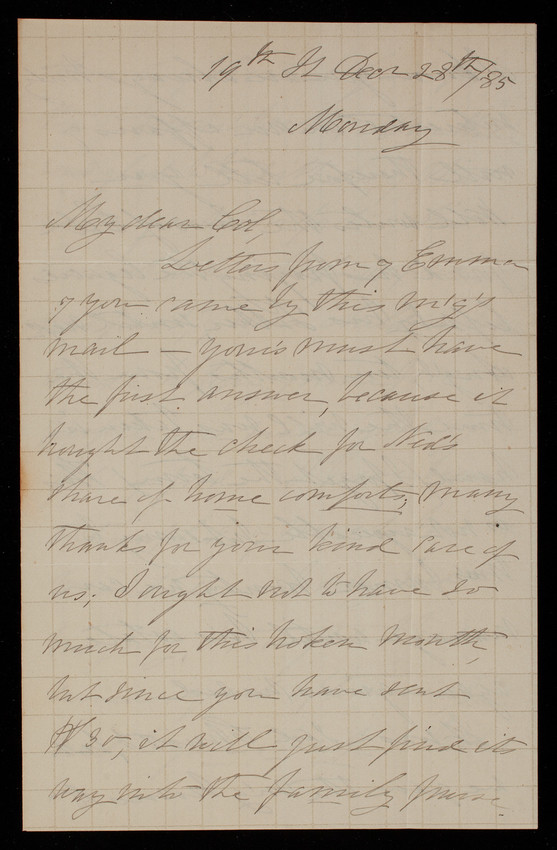 19th St Decr 28th/85
Monday
My dear Col,
Letters from Emma
& you came by this m'g's
mail - yours must have
the first answer, because it
bought the check for Ned's
share of home comforts; many
thanks for your kind care of
us; I ought not to have so
much for this broken month,
but since you have sent
$30, it will just find its
way into the family purse.